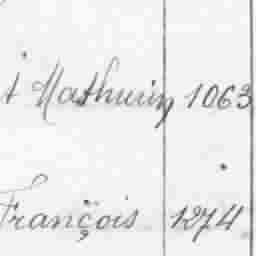 t Mathurin 1063
François 1274